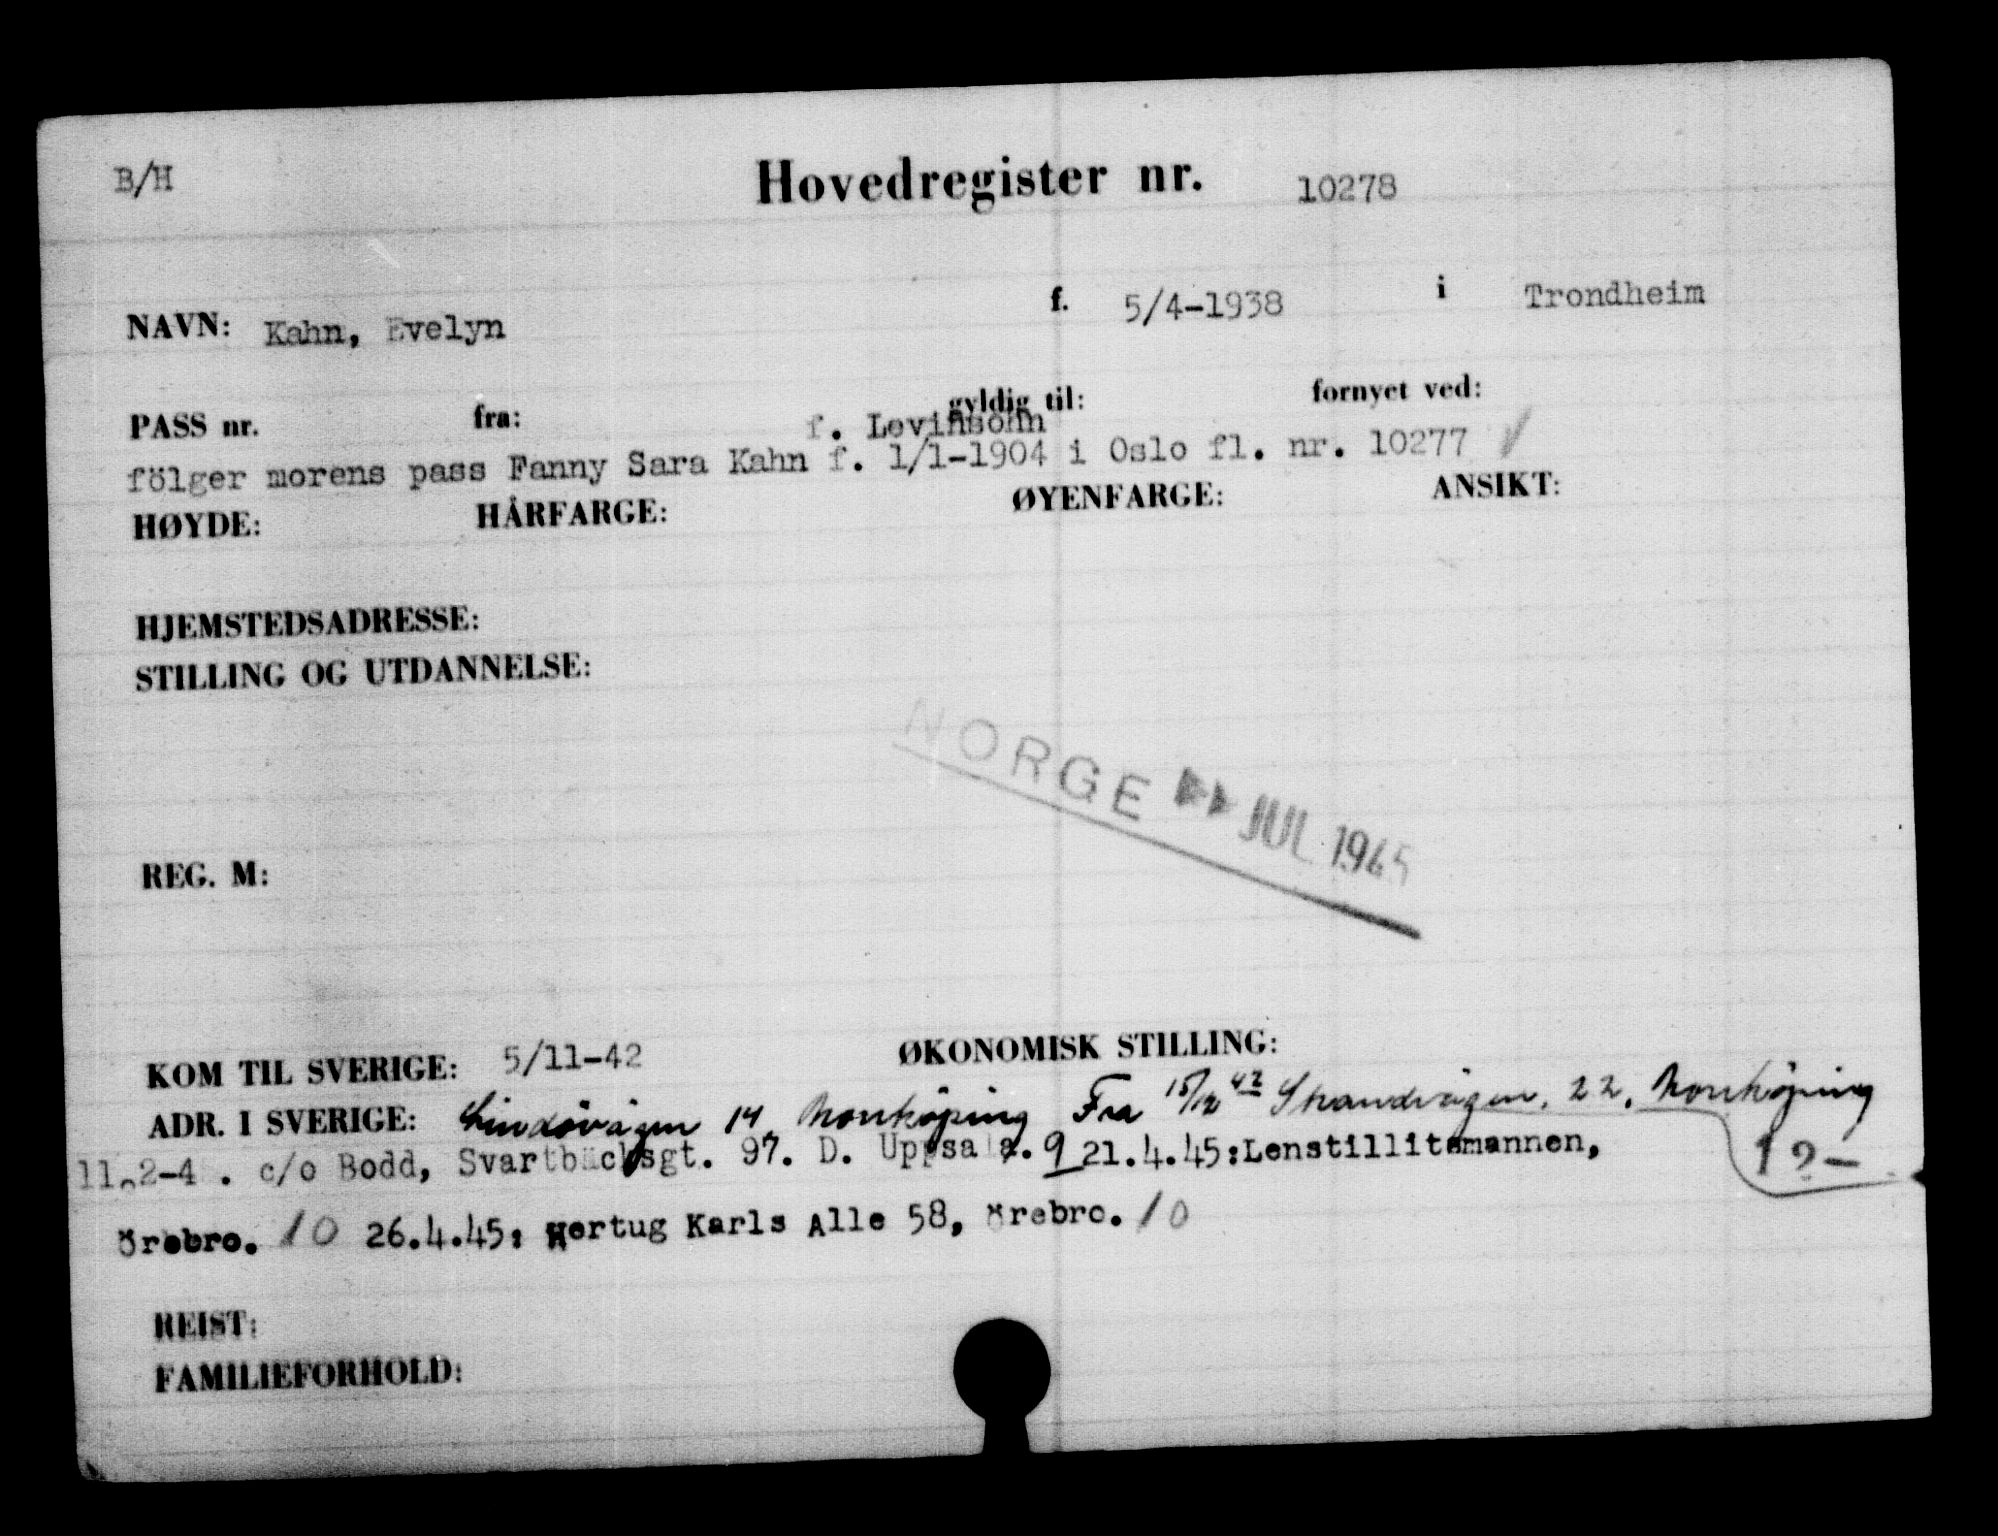 B/H
Hovedregister nr. 10278
NAVN: Kahn, Evelyn f. 5/4-1938 i Trondheim
PASS nr. fra: gyldig til: fornyet ved:
f. Levinsohn
fölger morens pass Fanny Sara Kahn f. 1/1-1904 i Oslo fl. nr. 10277
HØYDE: HÅRFARGE: ØYENFARGE: ANSIKT:
HJEMSTEDSADRESSE:
STILLING OG UTDANNELSE:
NORGE JUL 1945
REG. M:
KOM TIL SVERIGE: 5/11-42 ØKONOMISK STILLING:
ADR. I SVERIGE: Lindövägen 14, Norrköping Fra 15/12 42 Strandvägen, 22, Norrköping
11.2-4 . c/o Bodd, Svartbäcksgt. 97. D. Uppsala. 9 21.4.45:Lenstillitsmannen, 12-
Örebro. 10 26.4.45: Hertug Karls Alle 58, Örebro. 10
REIST:
FAMILIEFORHOLD: